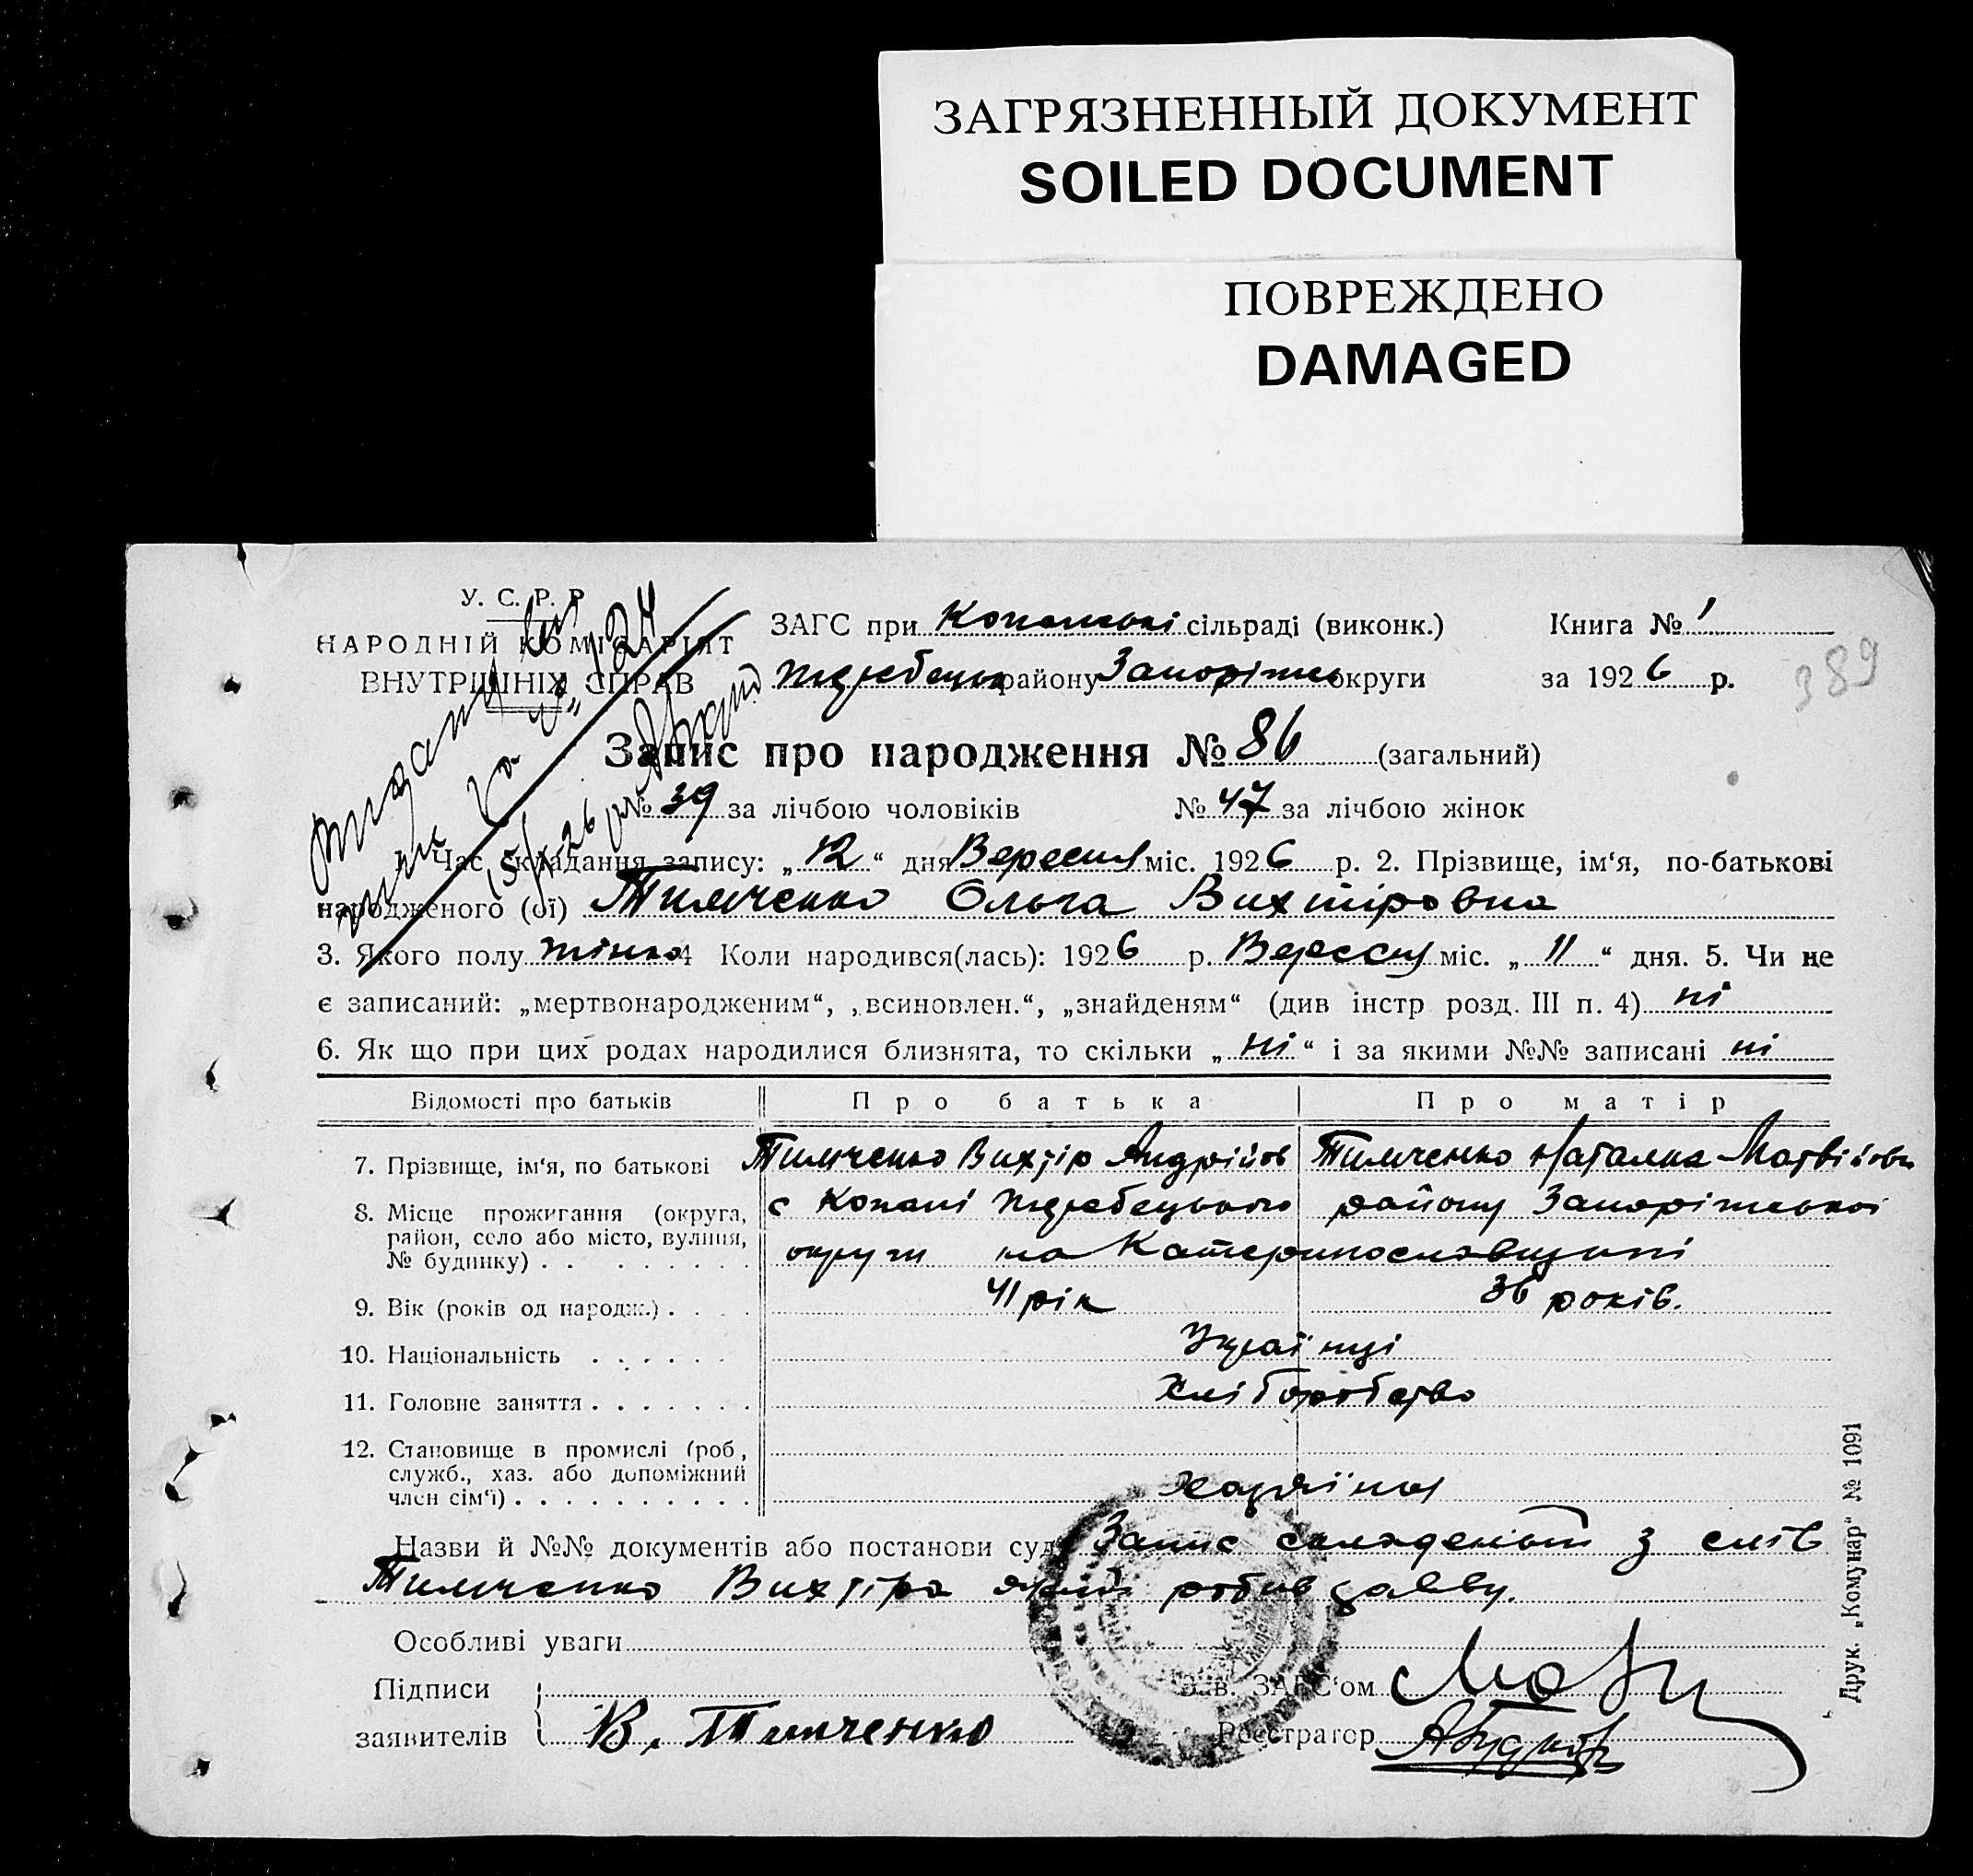 ЗАГРЯЗНЕННЫЙ ДОКУМЕНТ
SOILED DOCUMENT
ПОВРЕЖДЕНО
DAMAGED
У. С. Р. Р
НАРОДНІЙ КОМІСАРІЯТ
ВНУТРІШНІХ СПРАВ
ЗАГС при сільраді (виконк.) Книга № 1
району округи за 1926 р.
389
Запис про народження № 86 (загальний)
№ 39 за лічбою чоловіків № 47 за лічбою жінок
1. Час складання запису: „ 12 “ дня Вересня міс. 1926 р. 2. Прізвище, ім‘я, по-батькові
народженого (ої) Тимченко Ольга Вихтіровна
3. Якого полу жінка 4 Коли народився(лась): 1926 р. Вересня міс. „ 11 “ дня. 5. Чи не
є записаний: „мертвонародженим“, „всиновлен.“, „знайденям“ (див інстр розд. III п. 4) ні
6. Як що при цих родах народилися близнята, то скільки „ ні “ і за якими №№ записані ні
Відомості про батьків Про батька Про матір
7. Прізвище, ім‘я, по батькові Тимченко Вихтір Андрійов Тимченко Наталка Матвійовн
8. Місце прожигання (округа, район, село або місто, вулиця, № будинку) . . . . . . . .
с Копані Жеребецького району Запоріжської
округи на Катеринославщині
9. Вік (років од народж.) . . . . 41 рік 36 років.
10. Національність . . . . . . Українці
11. Головне заняття . . . . . . . Хліборобство
12. Становище в промислі (роб., служб., хаз. або допоміжний член сім‘ї) . . . . . . . . . . Хазяїни
Назви й №№ документів або постанови суду Запис складений з слів
Тимченко Вихтіра який робив заяву.
Особливі уваги
Підписи
заявителів В. Тимченко
Зав. ЗАГС‘ом
Реєстратор
Друк. „Комунар“ № 1091